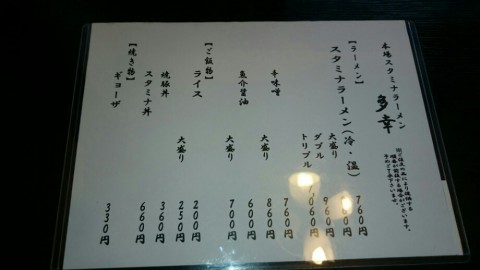 本場スタミナラーメン
多幸
【ラーメン】
スタミナラーメン(冷・温) 760円
大盛り 860円
ダブル 960円
トリプル 1,060円
辛味噌 760円
大盛り 860円
魚介醤油 600円
大盛り 700円
【ご飯物】
ライス 200円
大盛り 250円
焼豚丼 360円
スタミナ丼 660円
【焼き物】
ギョーザ 330円